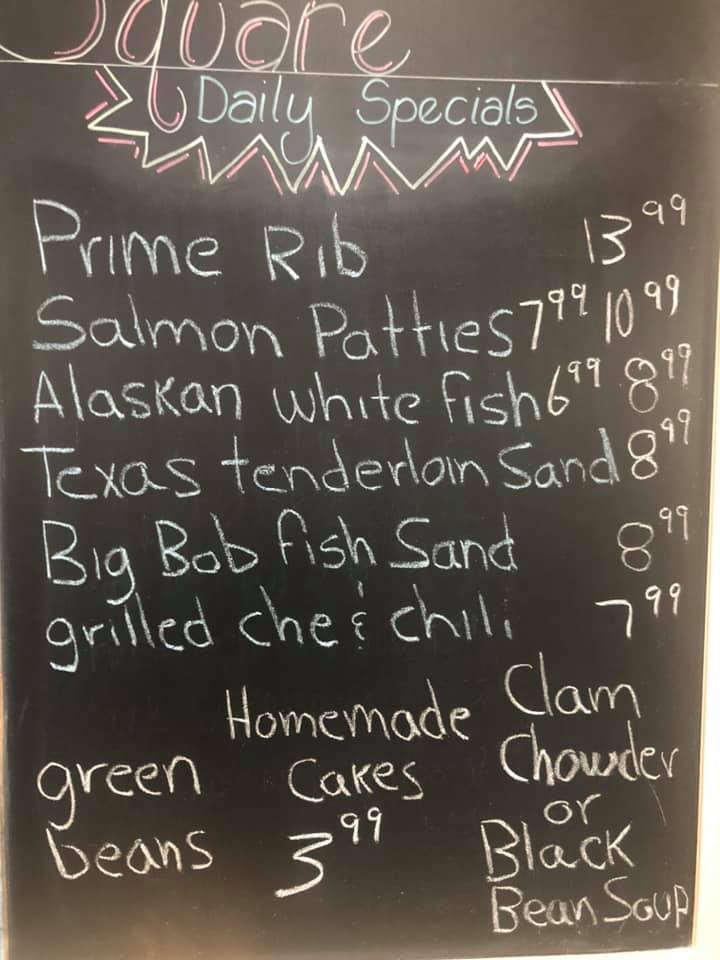 Square
Daily Specials
Prime Rib 13.99
Salmon Patties 7.99 10.99
Alaskan white fish 6.99 8.99
Texas tenderloin Sand 8.99
Big Bob fish Sand 8.99
grilled che & chili 7.99
green
beans
Homemade
Cakes
3.99
Clam
Chowder
or
Black
Bean Soup